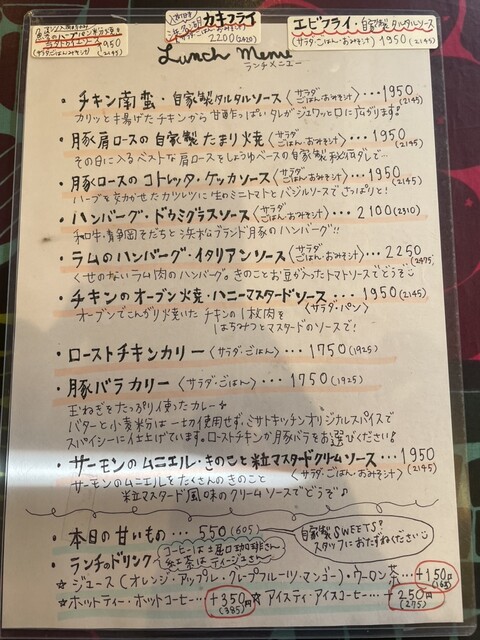 香草パン粉焼き
950
(サラダ・ごはん・おみそ汁) (2145)
カキフライ
(サラダ・ごはん・おみそ汁)
2200 (2420)
エビフライ・自家製タルタルソース
(サラダ・ごはん・おみそ汁) 1950 (2145)
Lunch Menu
ランチメニュー
・チキン南蛮・自家製タルタルソース〈サラダ ごはん・おみそ汁〉・・・1950 (2145)
カリッと揚げたチキンから甘酢っぱいタレがジュワッと口に広がります!
・豚肩ロースの自家製たまり焼〈サラダ ごはん・おみそ汁〉・・・1950 (2145)
その日に入るベストな肩ロースをしょうゆベースの自家製秘伝ダレで…
・豚ロースのコトレッタ・ケッカソース〈サラダ ごはん・おみそ汁〉・・・1950 (2145)
ハーブを効かせたカツレツに生のミニトマトとバジルソースでさっぱりと!
・ハンバーグ・ドゥミグラスソース〈サラダ ごはん・おみそ汁〉・・・2100 (2310)
和牛・静岡そだちと浜松ブランド豚のハンバーグ!!
・ラムのハンバーグ・イタリアンソース〈サラダ ごはん・おみそ汁〉・・・2250 (2475)
くせのないラム肉のハンバーグ。きのことお豆が入ったトマトソースでどうぞ
・チキンのオーブン焼・ハニーマスタードソース・・・1950 (2145)
オーブンでこんがり焼いたチキンの1枚肉を〈サラダ・パン〉
はちみつとマスタードのソースで!
・ローストチキンカリー〈サラダ・ごはん〉・・・1750 (1925)
・豚バラカリー〈サラダ・ごはん〉・・・1750 (1925)
玉ねぎをたっぷり使ったカレー
バターと小麦粉は一切使用せず、ミサトキッチンオリジナルスパイスで
スパイシーに仕上げています。ローストチキンか豚バラをお選びください!
・サーモンのムニエル・きのこと粒マスタードクリームソース・・・1950 (2145)
サーモンのムニエルをたくさんのきのこと〈サラダ・ごはん・おみそ汁〉
粒マスタード風味のクリームソースでどうぞ♪
・本日の甘いもの・・・550 (605)
自家製SWEETS!
スタッフにおたずねください
・ランチのドリンク
コーヒーは土居珈琲さん
紅茶はティージュさん
☆ジュース(オレンジ・アップル・グレープフルーツ・マンゴー)・ウーロン茶・・・+150円 (165)
☆ホットティー・ホットコーヒー・・・+350円 (385) ☆アイスティ・アイスコーヒー・・・+250円 (275)